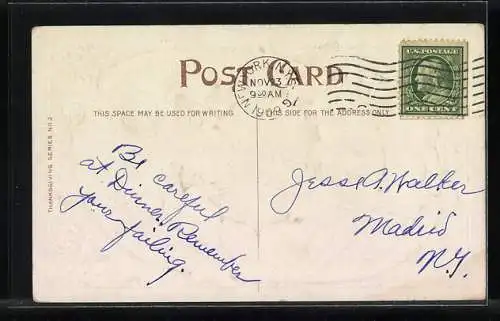 POST CARD
NOV 23
9 30 AM
1909
U.S. POSTAGE
ONE CENT
THIS SPACE MAY BE USED FOR WRITING.
THIS SIDE FOR THE ADDRESS ONLY.
THANKSGIVING SERIES NO. 2
Be careful
at Dinner. Remember
your failing.
Jesse A. Walker
Madrid
N.Y.